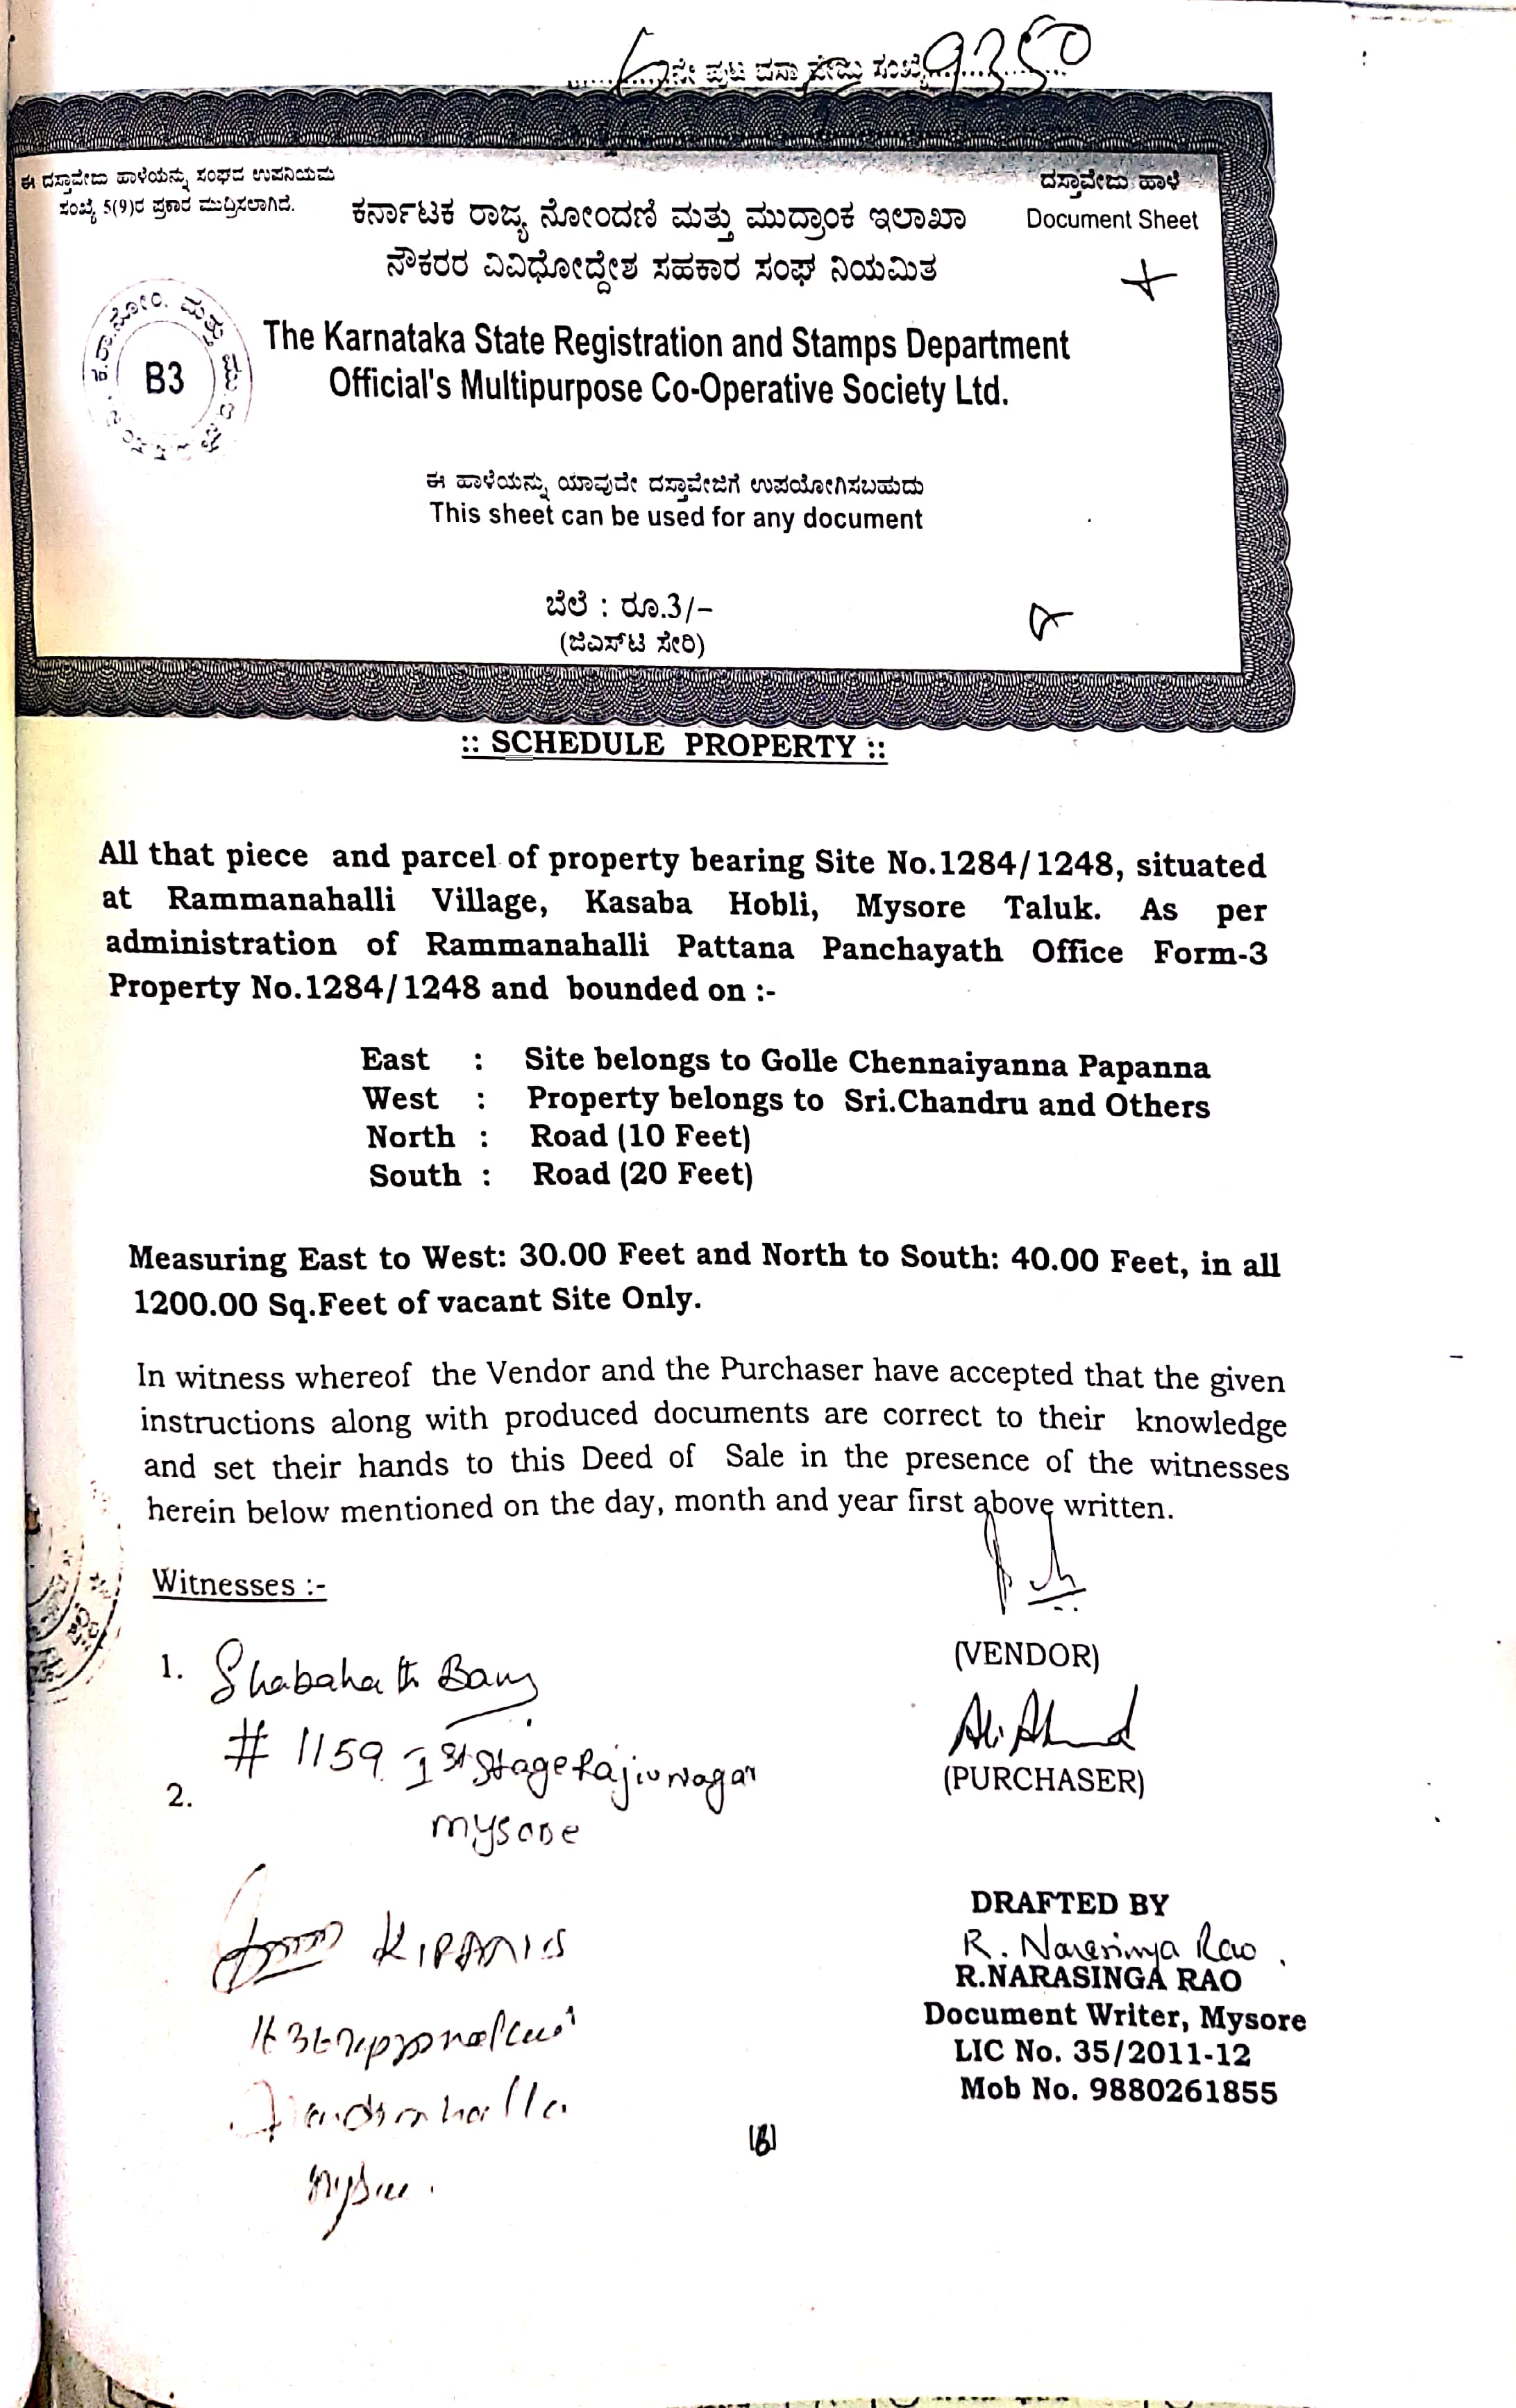 6 ನೇ ಪುಟ ದಸ್ತಾವೇಜು ಸಂಖ್ಯೆ 9350
ಈ ದಸ್ತಾವೇಜು ಹಾಳೆಯನ್ನು ಸಂಘದ ಉಪನಿಯಮ
ಸಂಖ್ಯೆ 5(9)ರ ಪ್ರಕಾರ ಮುದ್ರಿಸಲಾಗಿದೆ.
ದಸ್ತಾವೇಜು ಹಾಳೆ
Document Sheet
ಕರ್ನಾಟಕ ರಾಜ್ಯ ನೋಂದಣಿ ಮತ್ತು ಮುದ್ರಾಂಕ ಇಲಾಖಾ
ನೌಕರರ ವಿವಿಧೋದ್ದೇಶ ಸಹಕಾರ ಸಂಘ ನಿಯಮಿತ
B3
The Karnataka State Registration and Stamps Department
Official's Multipurpose Co-Operative Society Ltd.
ಈ ಹಾಳೆಯನ್ನು ಯಾವುದೇ ದಸ್ತಾವೇಜಿಗೆ ಉಪಯೋಗಿಸಬಹುದು
This sheet can be used for any document
ಬೆಲೆ : ರೂ.3/-
(ಜಿಎಸ್‌ಟಿ ಸೇರಿ)
:: SCHEDULE PROPERTY ::
All that piece and parcel of property bearing Site No.1284/1248, situated
at Rammanahalli Village, Kasaba Hobli, Mysore Taluk. As per
administration of Rammanahalli Pattana Panchayath Office Form-3
Property No.1284/1248 and bounded on :-
East : Site belongs to Golle Chennaiyanna Papanna
West : Property belongs to Sri.Chandru and Others
North : Road (10 Feet)
South : Road (20 Feet)
Measuring East to West: 30.00 Feet and North to South: 40.00 Feet, in all
1200.00 Sq.Feet of vacant Site Only.
In witness whereof the Vendor and the Purchaser have accepted that the given
instructions along with produced documents are correct to their knowledge
and set their hands to this Deed of Sale in the presence of the witnesses
herein below mentioned on the day, month and year first above written.
Witnesses :-
(VENDOR)
1. Shabahath
# 1159 1st Stage Rajiv Nagar
2.
mysore
(PURCHASER)
DRAFTED BY
R. Narasinga Rao
R.NARASINGA RAO
Document Writer, Mysore
LIC No. 35/2011-12
Mob No. 9880261855